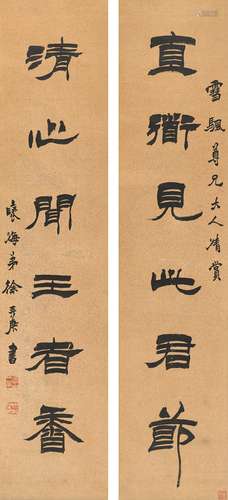 直衜見此君節
雪颿尊兄大人清賞
清心聞王者香
徐三庚書